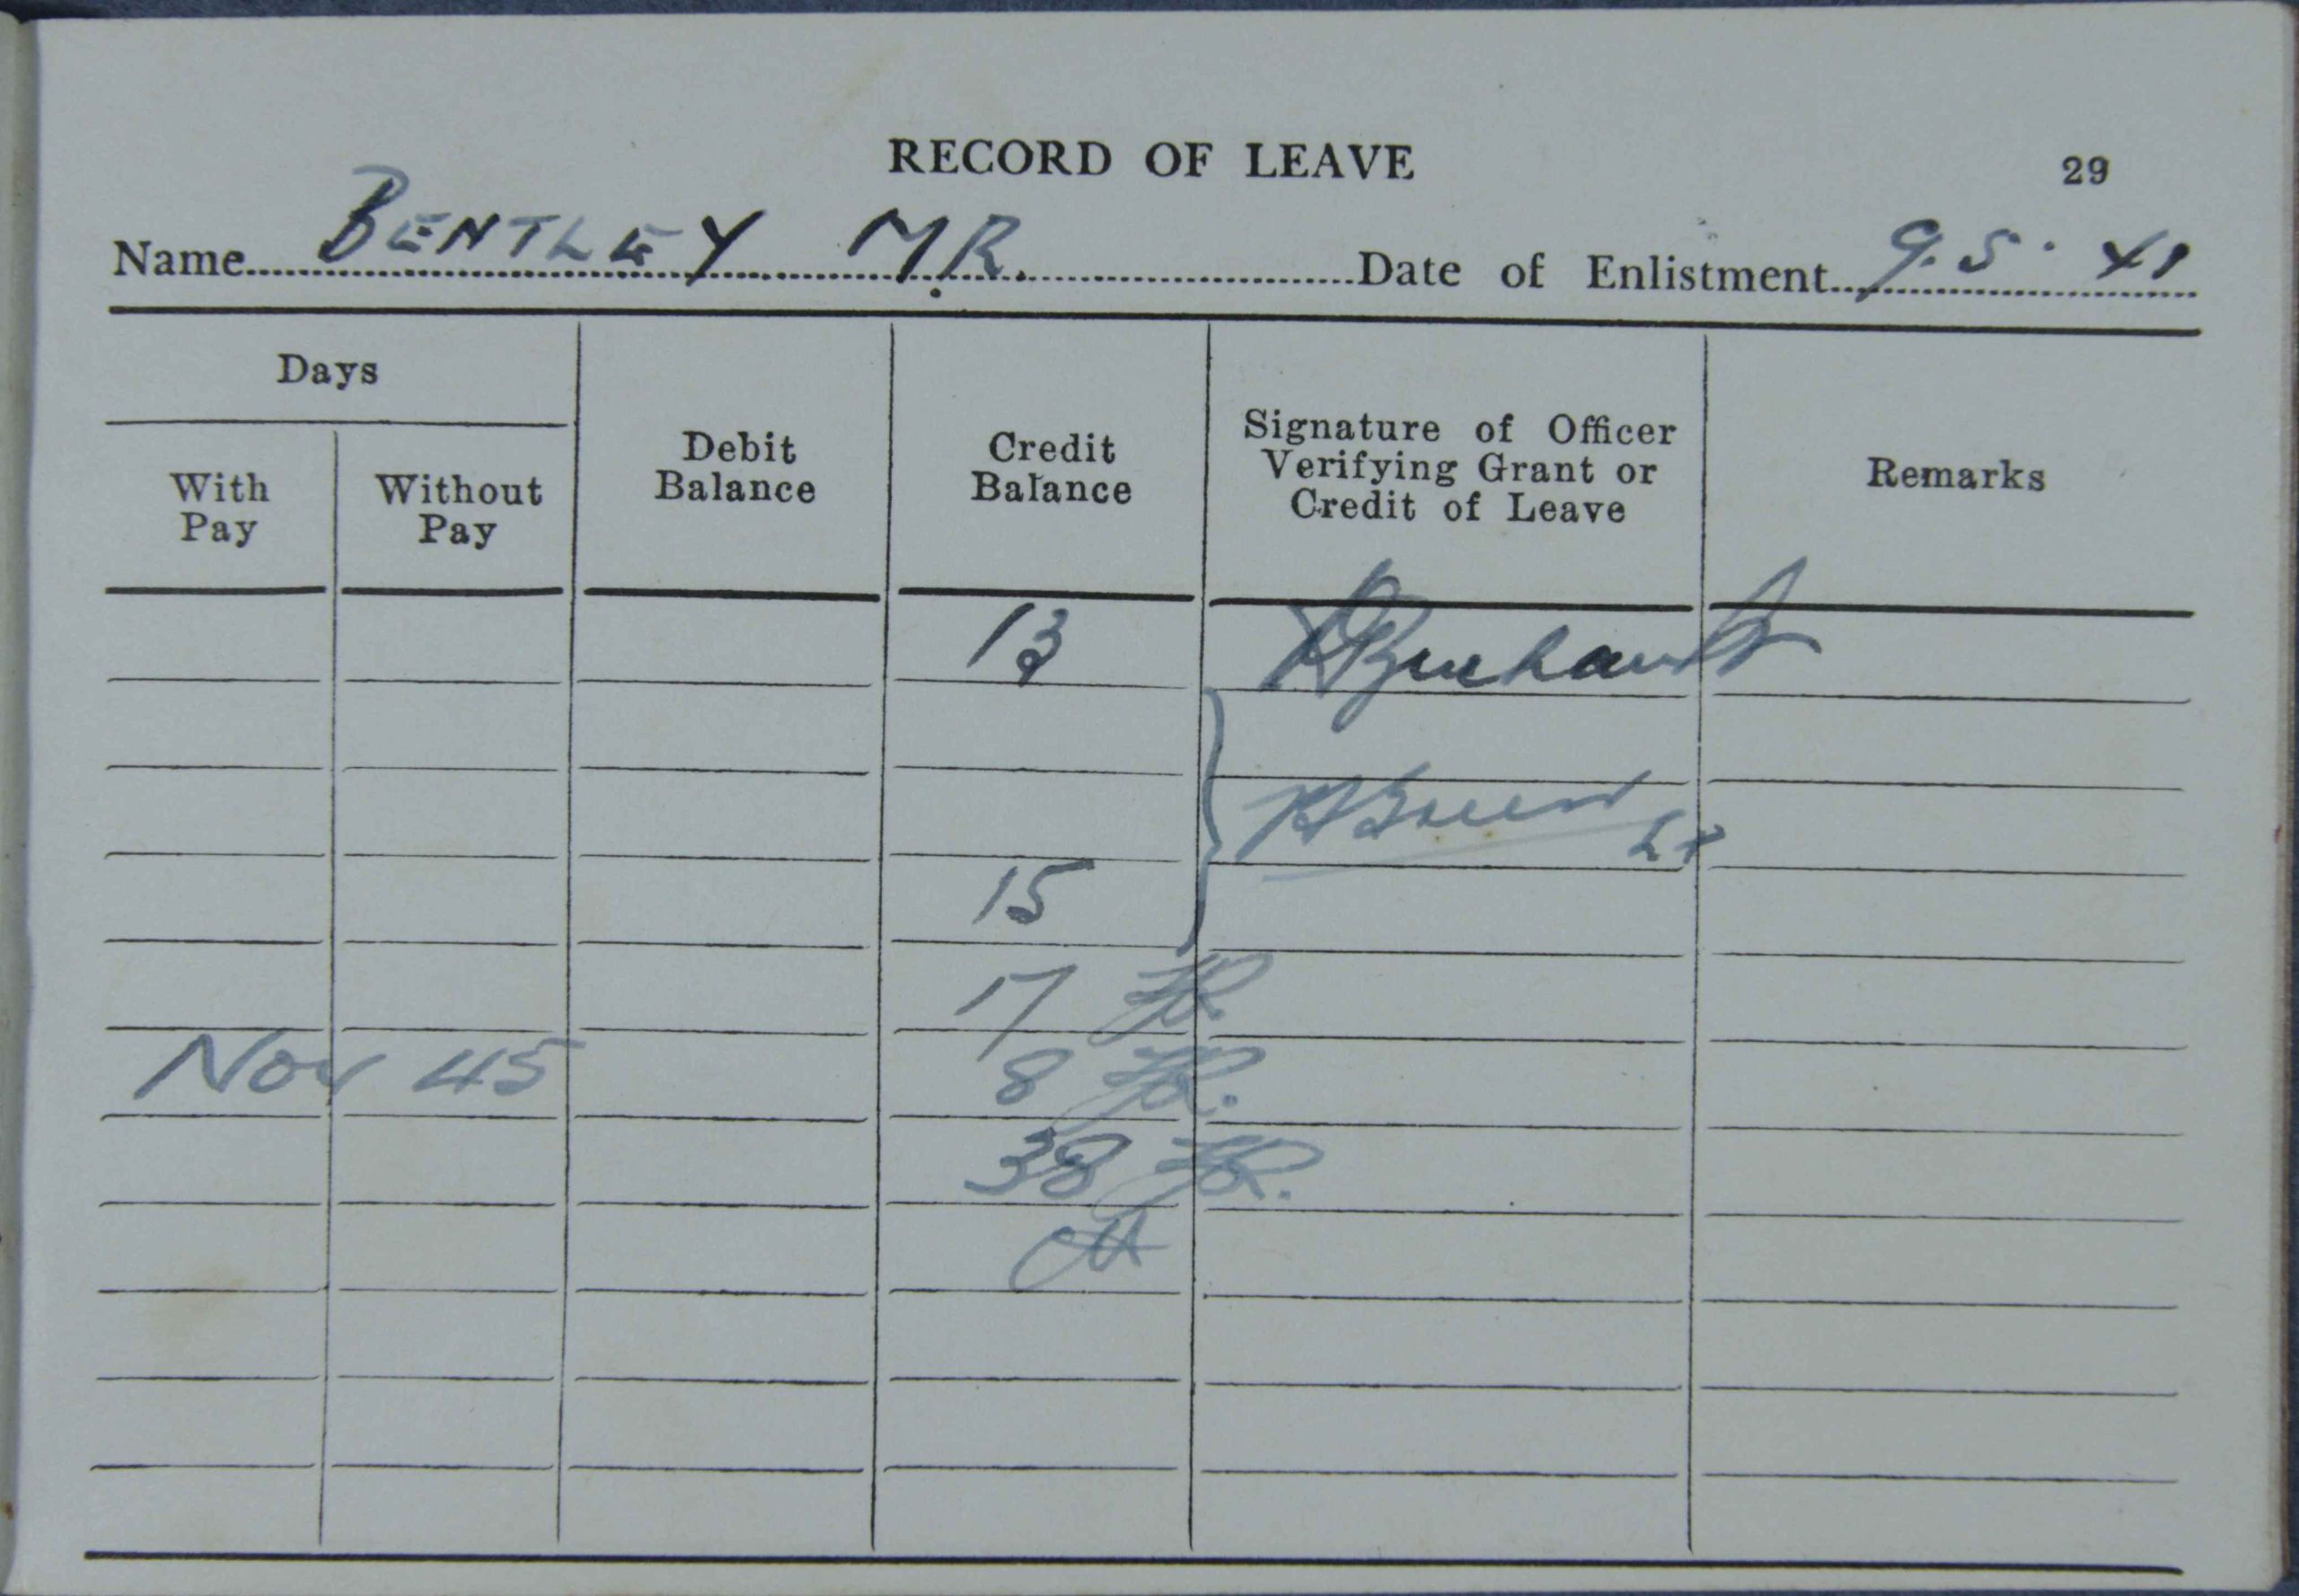 RECORD OF LEAVE 29
Name BENTLEY M.R. Date of Enlistment 9.5.41
Days
Debit Balance
Credit Balance
Signature of Officer
Verifying Grant or
Credit of Leave
Remarks
With Pay
Without Pay
13
Lt
15
17
Nov 45 8
38